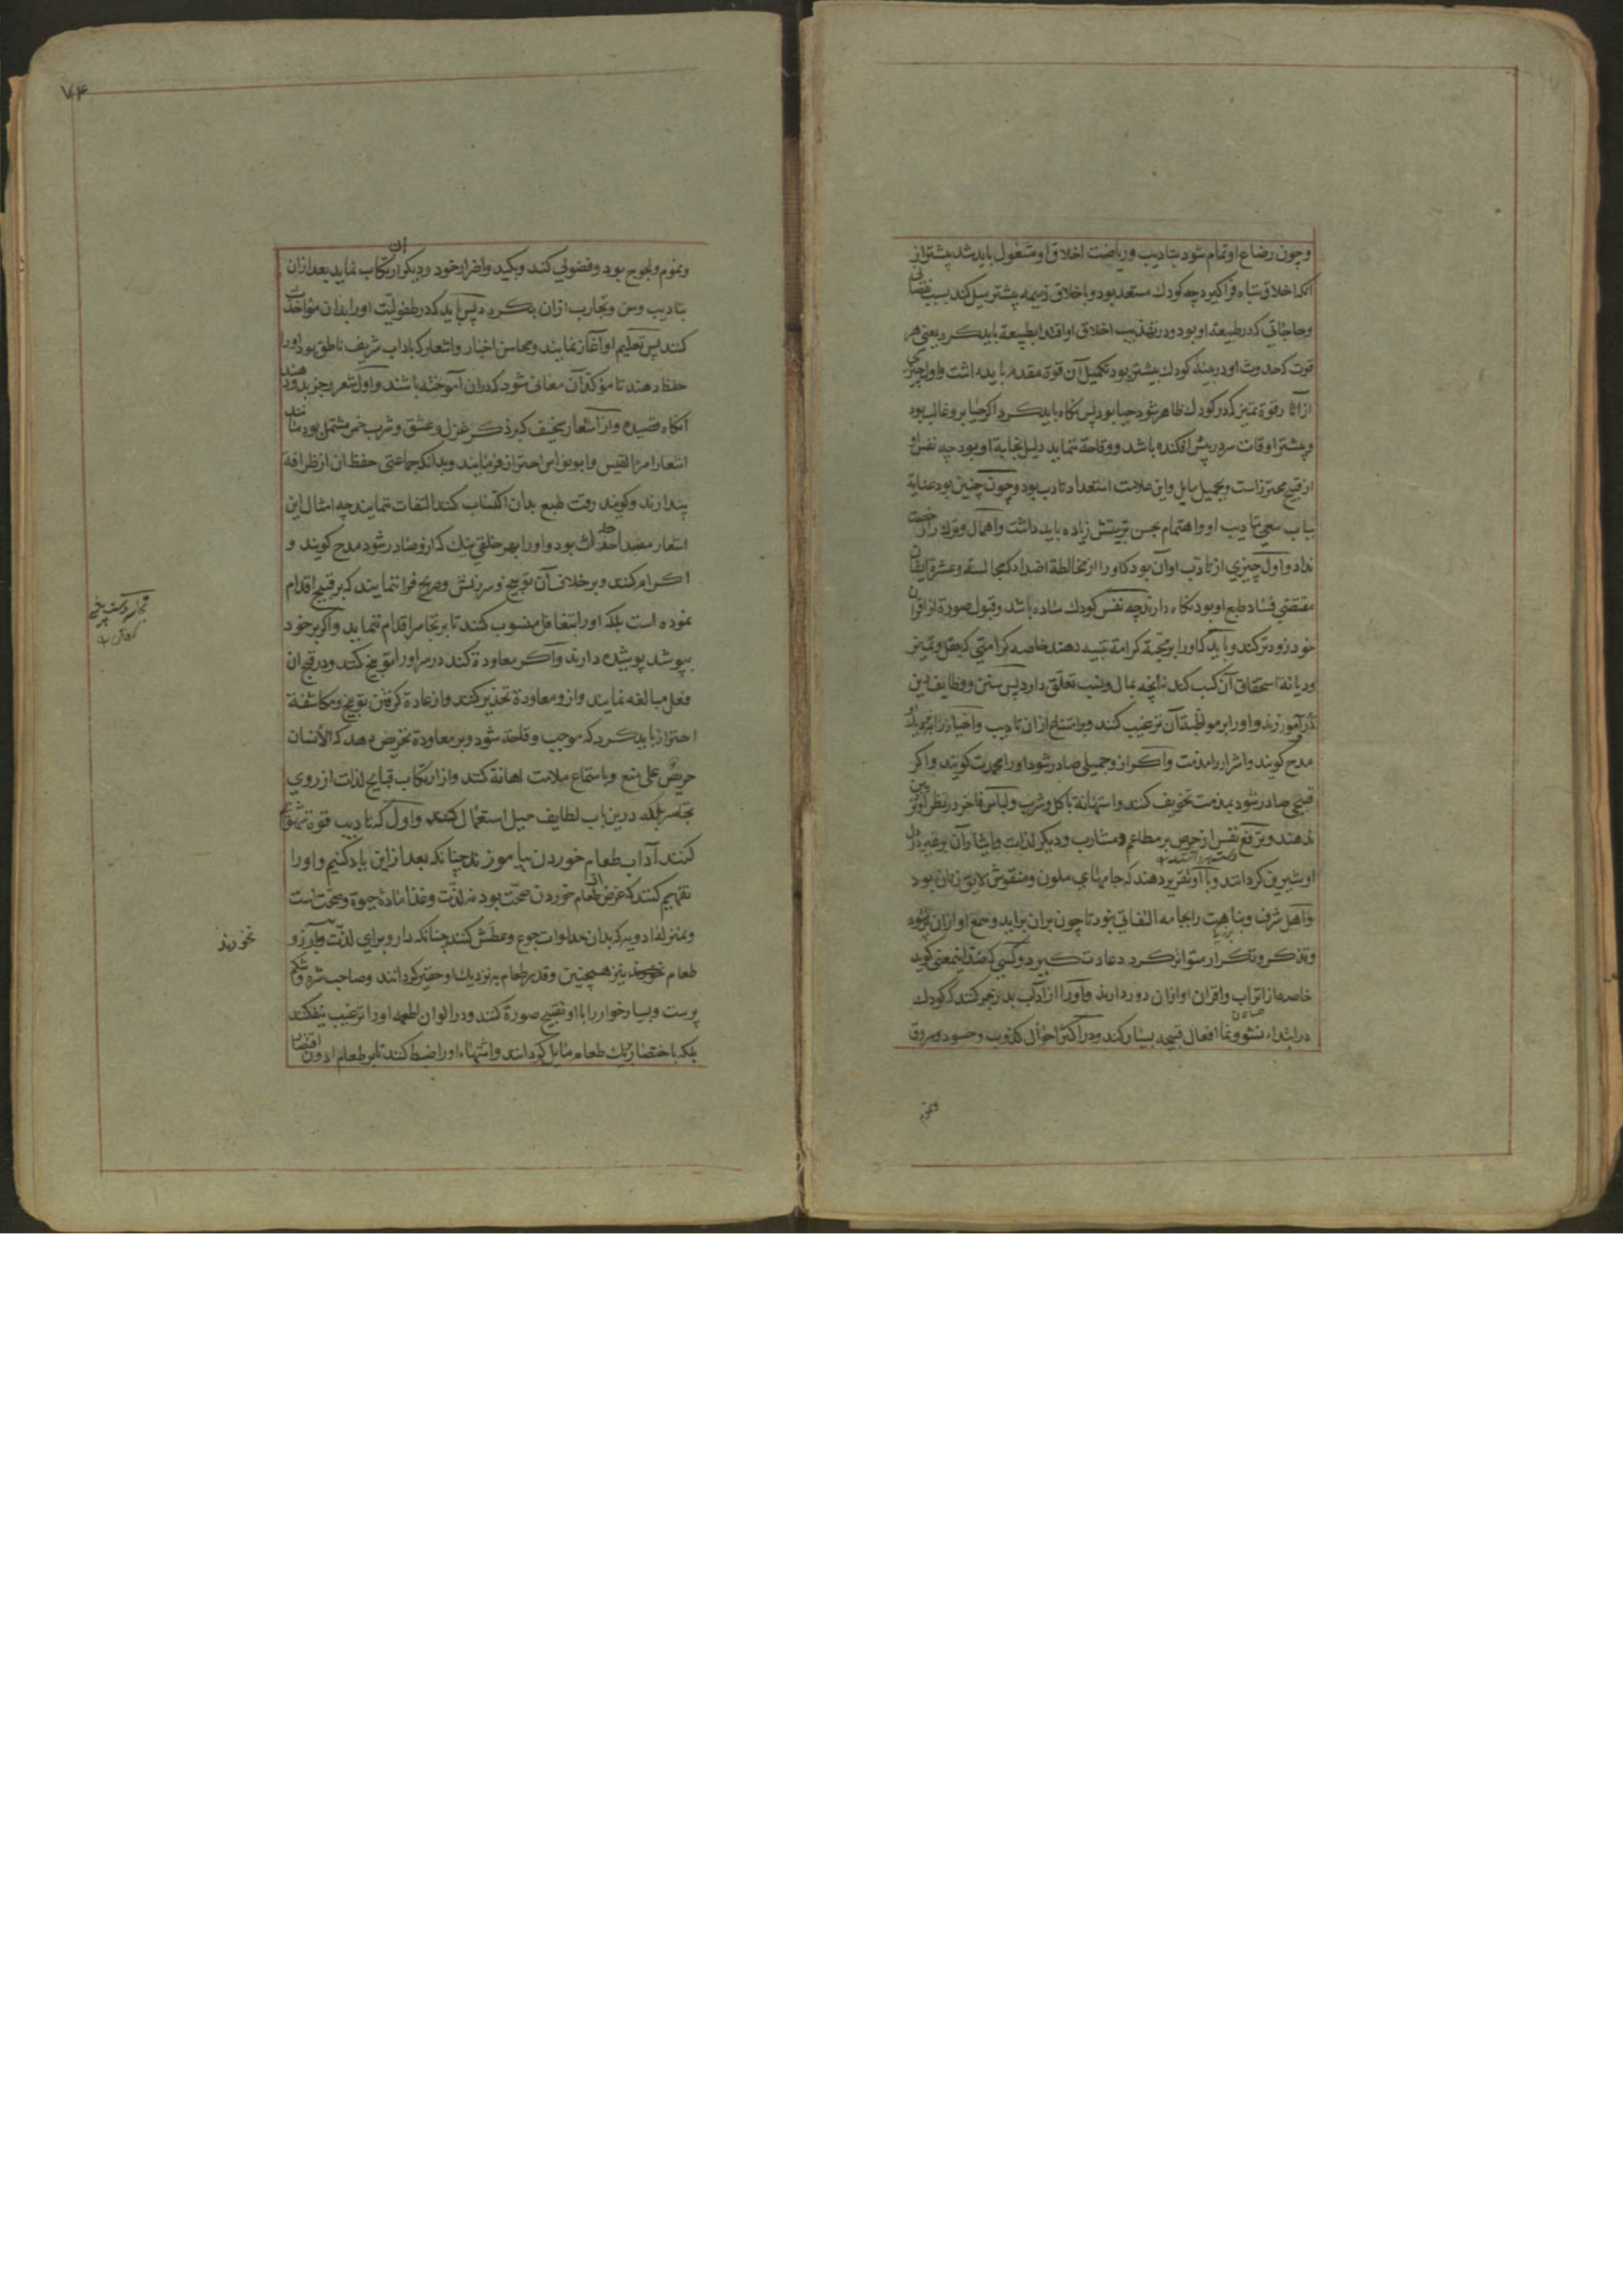 وچون رضاع او تمام شود بتادیب وریاضت اخلاق او مشغول باید شد پیشتر از
انکه اخلاق تباه فراکیرد چه کودك مستعد بود وباخلاق ذمیمه بیشتر میل کند بسبب نقصانی
وحاجاتی که در طبیعة او بود ودر تهذیب اخلاق او اقتدا بطبیعة باید کرد یعنی هر
قوت که حدوث او در بنیة کودك بیشتر بود تکمیل آن قوة مقدم باید داشت واول چیزی
از آثار قوة تمیز که در کودك ظاهر شود حیا بود پس نکاه باید کرد اکر حیا برو غالب بود
وبیشتر اوقات سر در پیش افکنده باشد ووقاحة ننماید دلیل نجابة او بود چه نفس او
از قبیح محترز است وبجمیل مایل واین علامت استعداد تادب بود وچون چنین بود عنایة
بباب سعی تادیب او واهتمام بحسن تربیتش زیاده باید داشت واهمال وترك را رخصت
نداد واول چیزی از تادیب او آن بود که او را از مخالطة اضداد که مجالسة وعشرة ایشان
مقتضی فساد طبع او بود نکاه دارند چه نفس کودك ساده باشد وقبول صورة از اقران
خود زودتر کند وباید که او را بر محبة کرامة تنبیه دهند خاصه کرامتی که بعقل وتمیز
ودیانة استحقاق آن کسب کند نه انچه بمال ونسب تعلق دارد پس سنن ووظایف دین
در آموزند واو را بر مواظبت آن ترغیب کنند وبر امتناع از ان تادیب واخیار را بنزد او
مدح کویند واشرار را مذمت واکر از و جمیلی صادر شود او را محمدت کویند واکر
قبیحی صادر شود بمذمت تخویف کنند واستهانة باکل وشرب ولباس فاخر در نظر او تزیین
دهند وترفع نفس از حرص بر مطاعم ومشارب ودیکر لذات وایثار آن بر غیر در دل
او شیرین کردانند وبا او تقریر دهند که جامهای ملون ومنقوش لایق زنان بود
واهل شرف ونباهت را بجامه التفاتی نبود تا چون بران براید وسمع او ازان پر شود
وتذکر وتکرار متواتر کردد عادت کیرد وکسی که ضد اینمعنی کوید
خاصه از اتراب واقران او ازان دور دارند واو را از آداب بد زجر کنند که کودك
در ابتداء نشو ونما افعال قبیحه بسیار کند ودر اکثر احوال کذوب وحسود وسروق
ونموم ولجوج بود وفضولی کند وکید واضرار خود ودیکران ارتکاب نماید بعد ازان
بتادیب وسن وتجارب ازان بکردد پس باید که در طفولیت او را بدان مواخذت
کنند پس تعلیم او آغاز نمایند ومحاسن اخبار واشعار که باداب شریف ناطق بود او را
حفظ دهند تا مؤکد آن معانی شود که دران آموخته باشند واول شعر رجز بدو دهند
آنکاه قصیده واز اشعار سخیف که بر ذکر غزل وعشق وشرب خمر مشتمل بود مانند
اشعار امرء القیس وابو نواس احتراز فرمایند وبدانکه جماعتی حفظ ان از ظرافة
پندارند وکویند رقت طبع بدان اکتساب کنند التفات ننمایند چه امثال این
اشعار مفسد احداث بود واو را بهر خلقی نیك که ازو صادر شود مدح کویند و
اکرام کنند وبر خلاف آن توبیخ وسرزنش وصریح فرا ننمایند که بر قبیح اقدام
نموده است بلکه او را بتغافل منسوب کنند تا بر تجاسر اقدام ننماید واکر بر خود
بپوشد پوشیده دارند واکر معاودة کند در سر او را توبیخ کنند ودر قبح ان
فعل مبالغه نمایند واز ومعاودة تحذیر کنند واز عادة کرفتن توبیخ ومکاشفة
احتراز باید کرد که موجب وقاحة شود وبر معاودة تحریض دهد که الأنسان
حریصٌ علی منع وباستماع ملامت اهانة کند واز ارتکاب قبایح لذات از روی
تجاسر بلکه درین باب لطایف حیل استعمال کنند واول که تادیب قوة شهوی
کنند آداب طعام خوردن بیاموزند چنانکه بعد از این یاد کنیم واو را
تفهیم کنند که غرض از طعام خوردن صحت بود نه لذت وغذا مادهٔ حیوة وصحت است
وبمنزلهٔ ادویه که بدان مداوات جوع وعطش کنند چنانکه دارو برای لذت وآرزو نخورند
طعام نیز همچنین وقدر طعام بنزدیك او حقیر کردانند وصاحب شره وشکم
پرست وبسیار خوار را با او تقبیح صورة کنند ودر الوان اطعمه او را ترغیب نیفکنند
بلکه باختصار بیك طعام مایل کردانند واشتهاء او را ضبط کنند تا بر طعام ادون اقتصار
نخورند
۷۴
ونموم